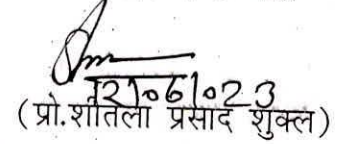 21.06.023
(प्रो.शीतला प्रसाद शुक्ल)